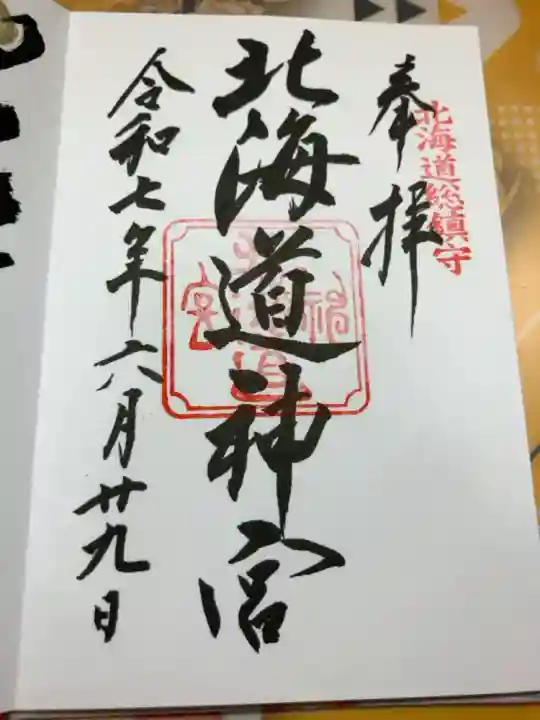 北海道総鎮守
奉拝
北海道神宮
令和七年六月廿九日